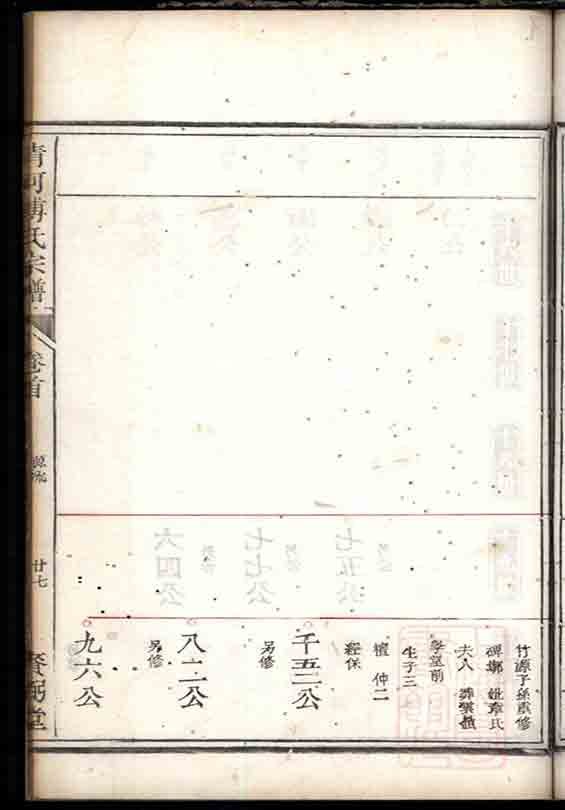 竹源子孫眾修
碑鄉 妣章氏
夫人 葬裳嶺
學堂前
生子三
檀 仲二
經保
千五二公
另修
八二公
另修
九六公
清河傅氏宗譜
卷首
源流
廿七
賚弼堂